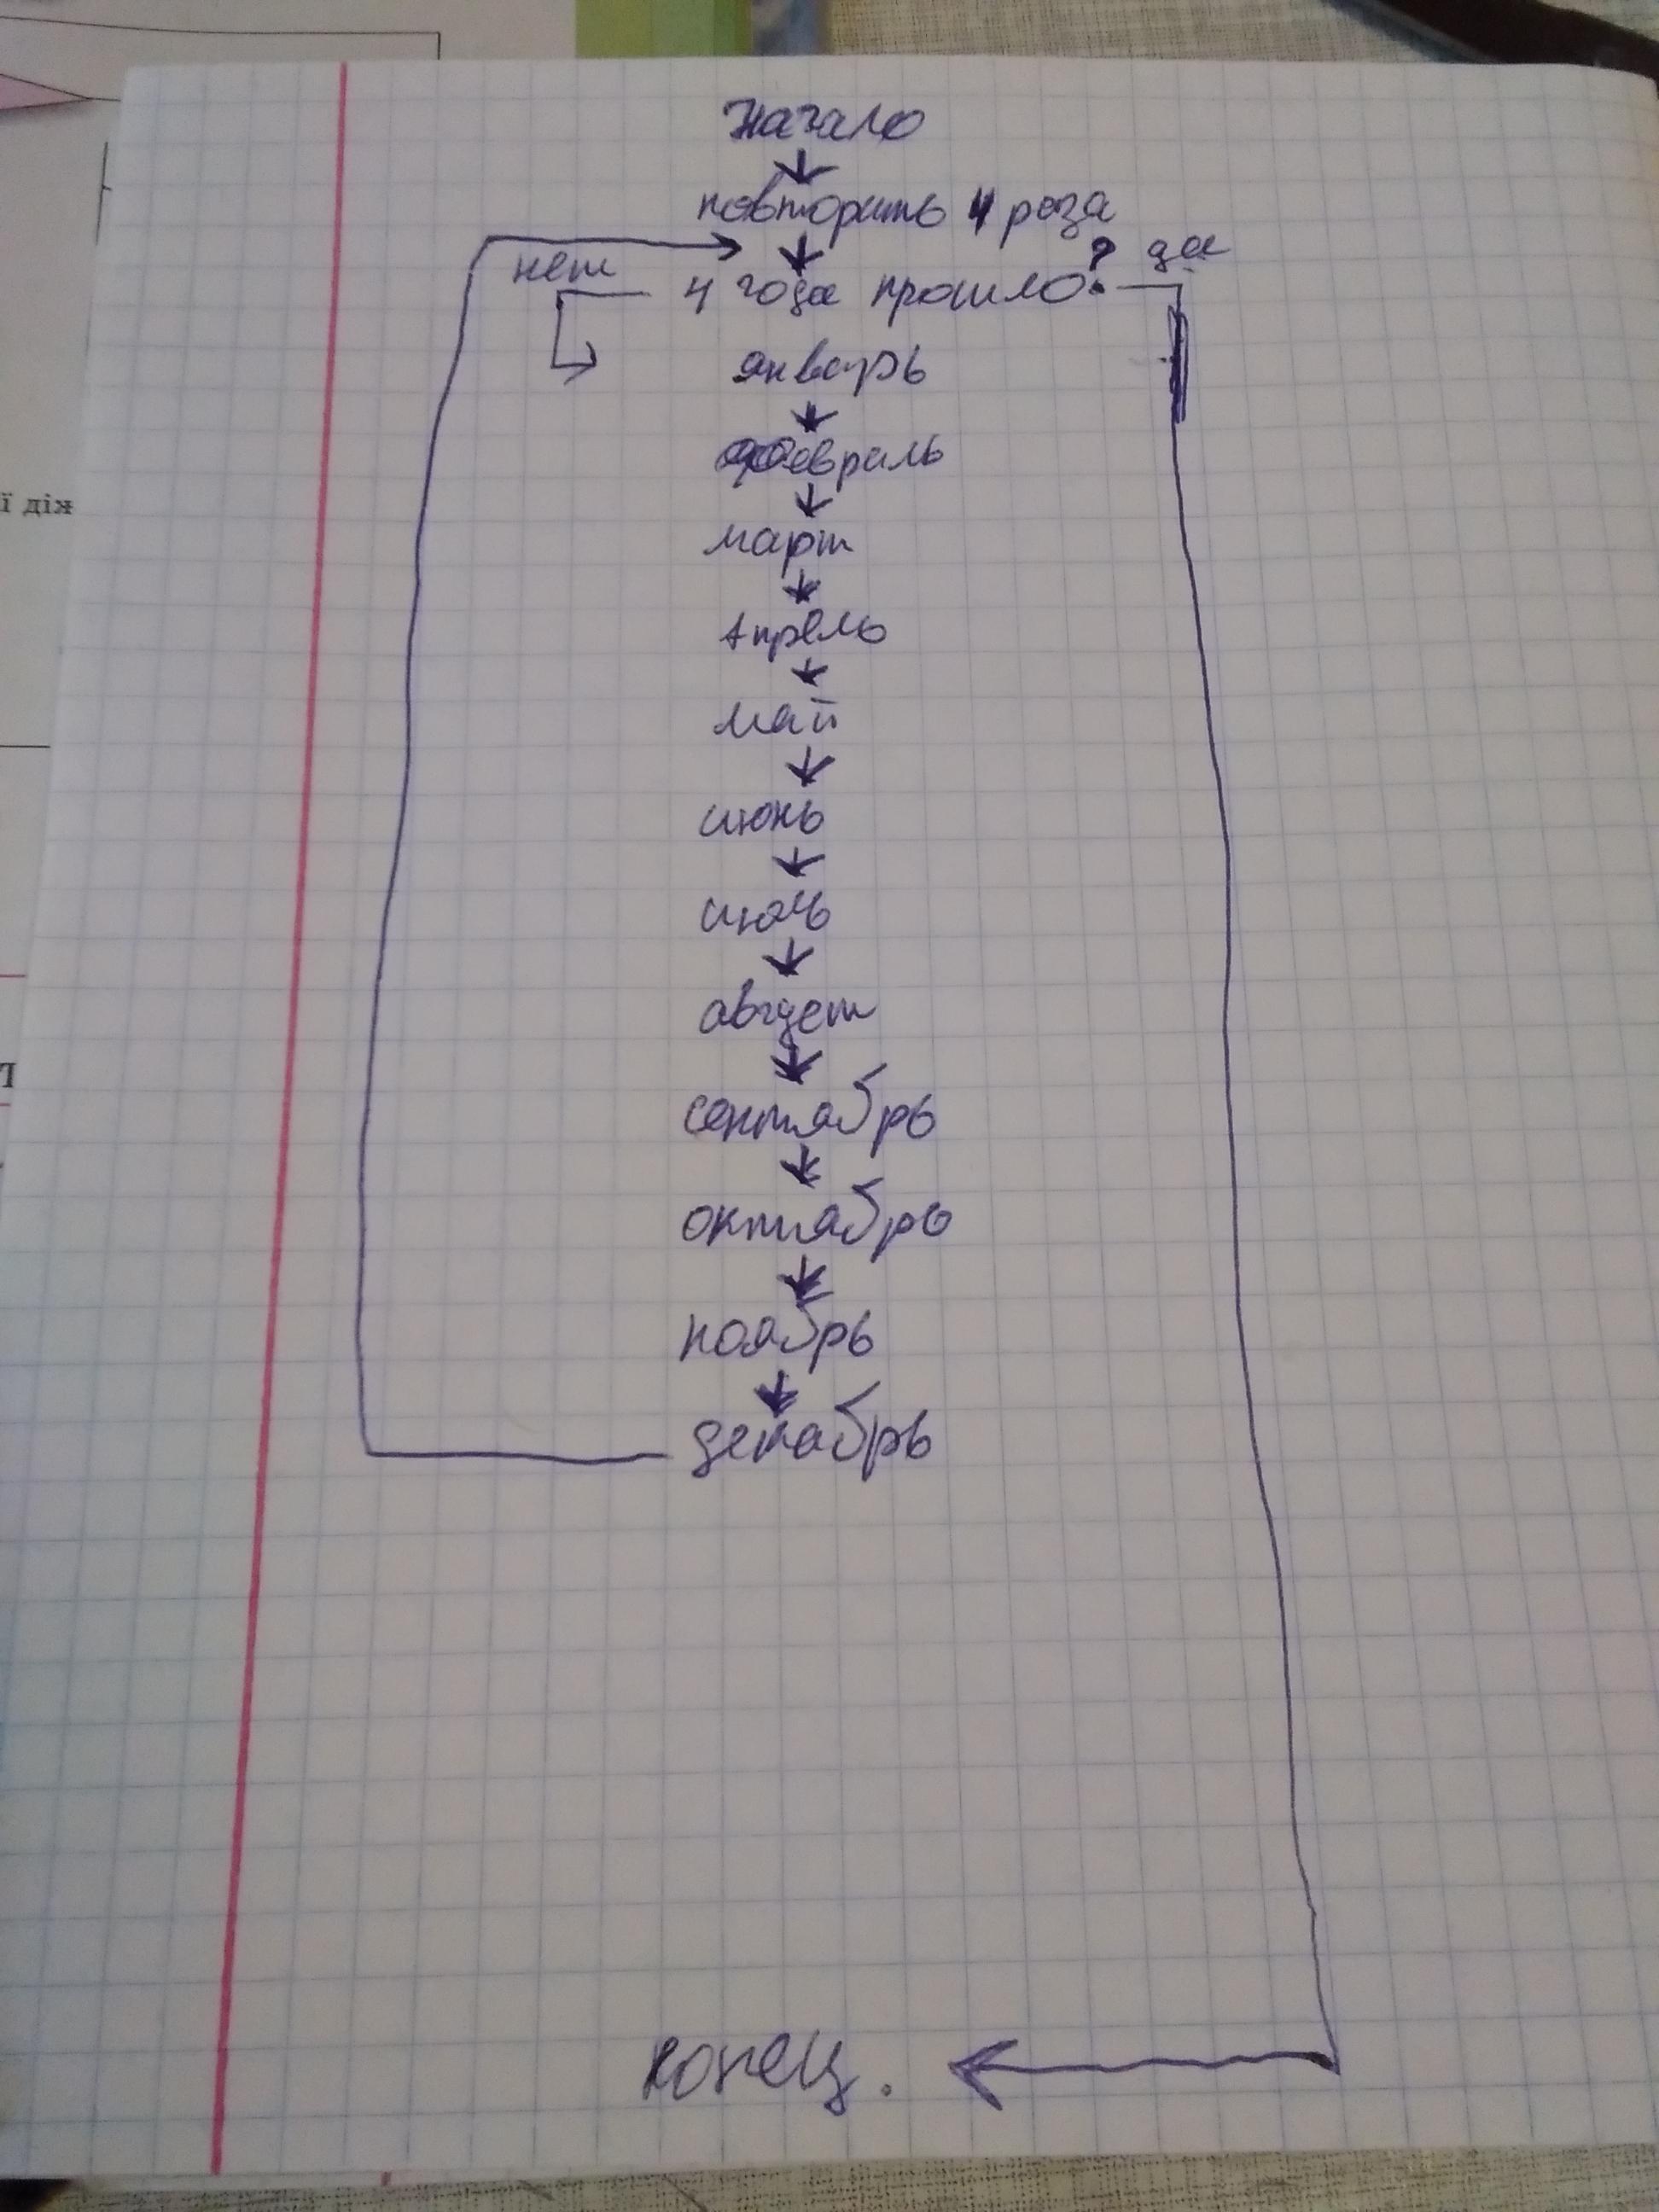 Начало
повторить 4 раза
нет
да
4 года прошло?
январь
февраль
март
Апрель
май
июнь
июль
август
сентябрь
октябрь
ноябрь
декабрь
конец.
ї дія